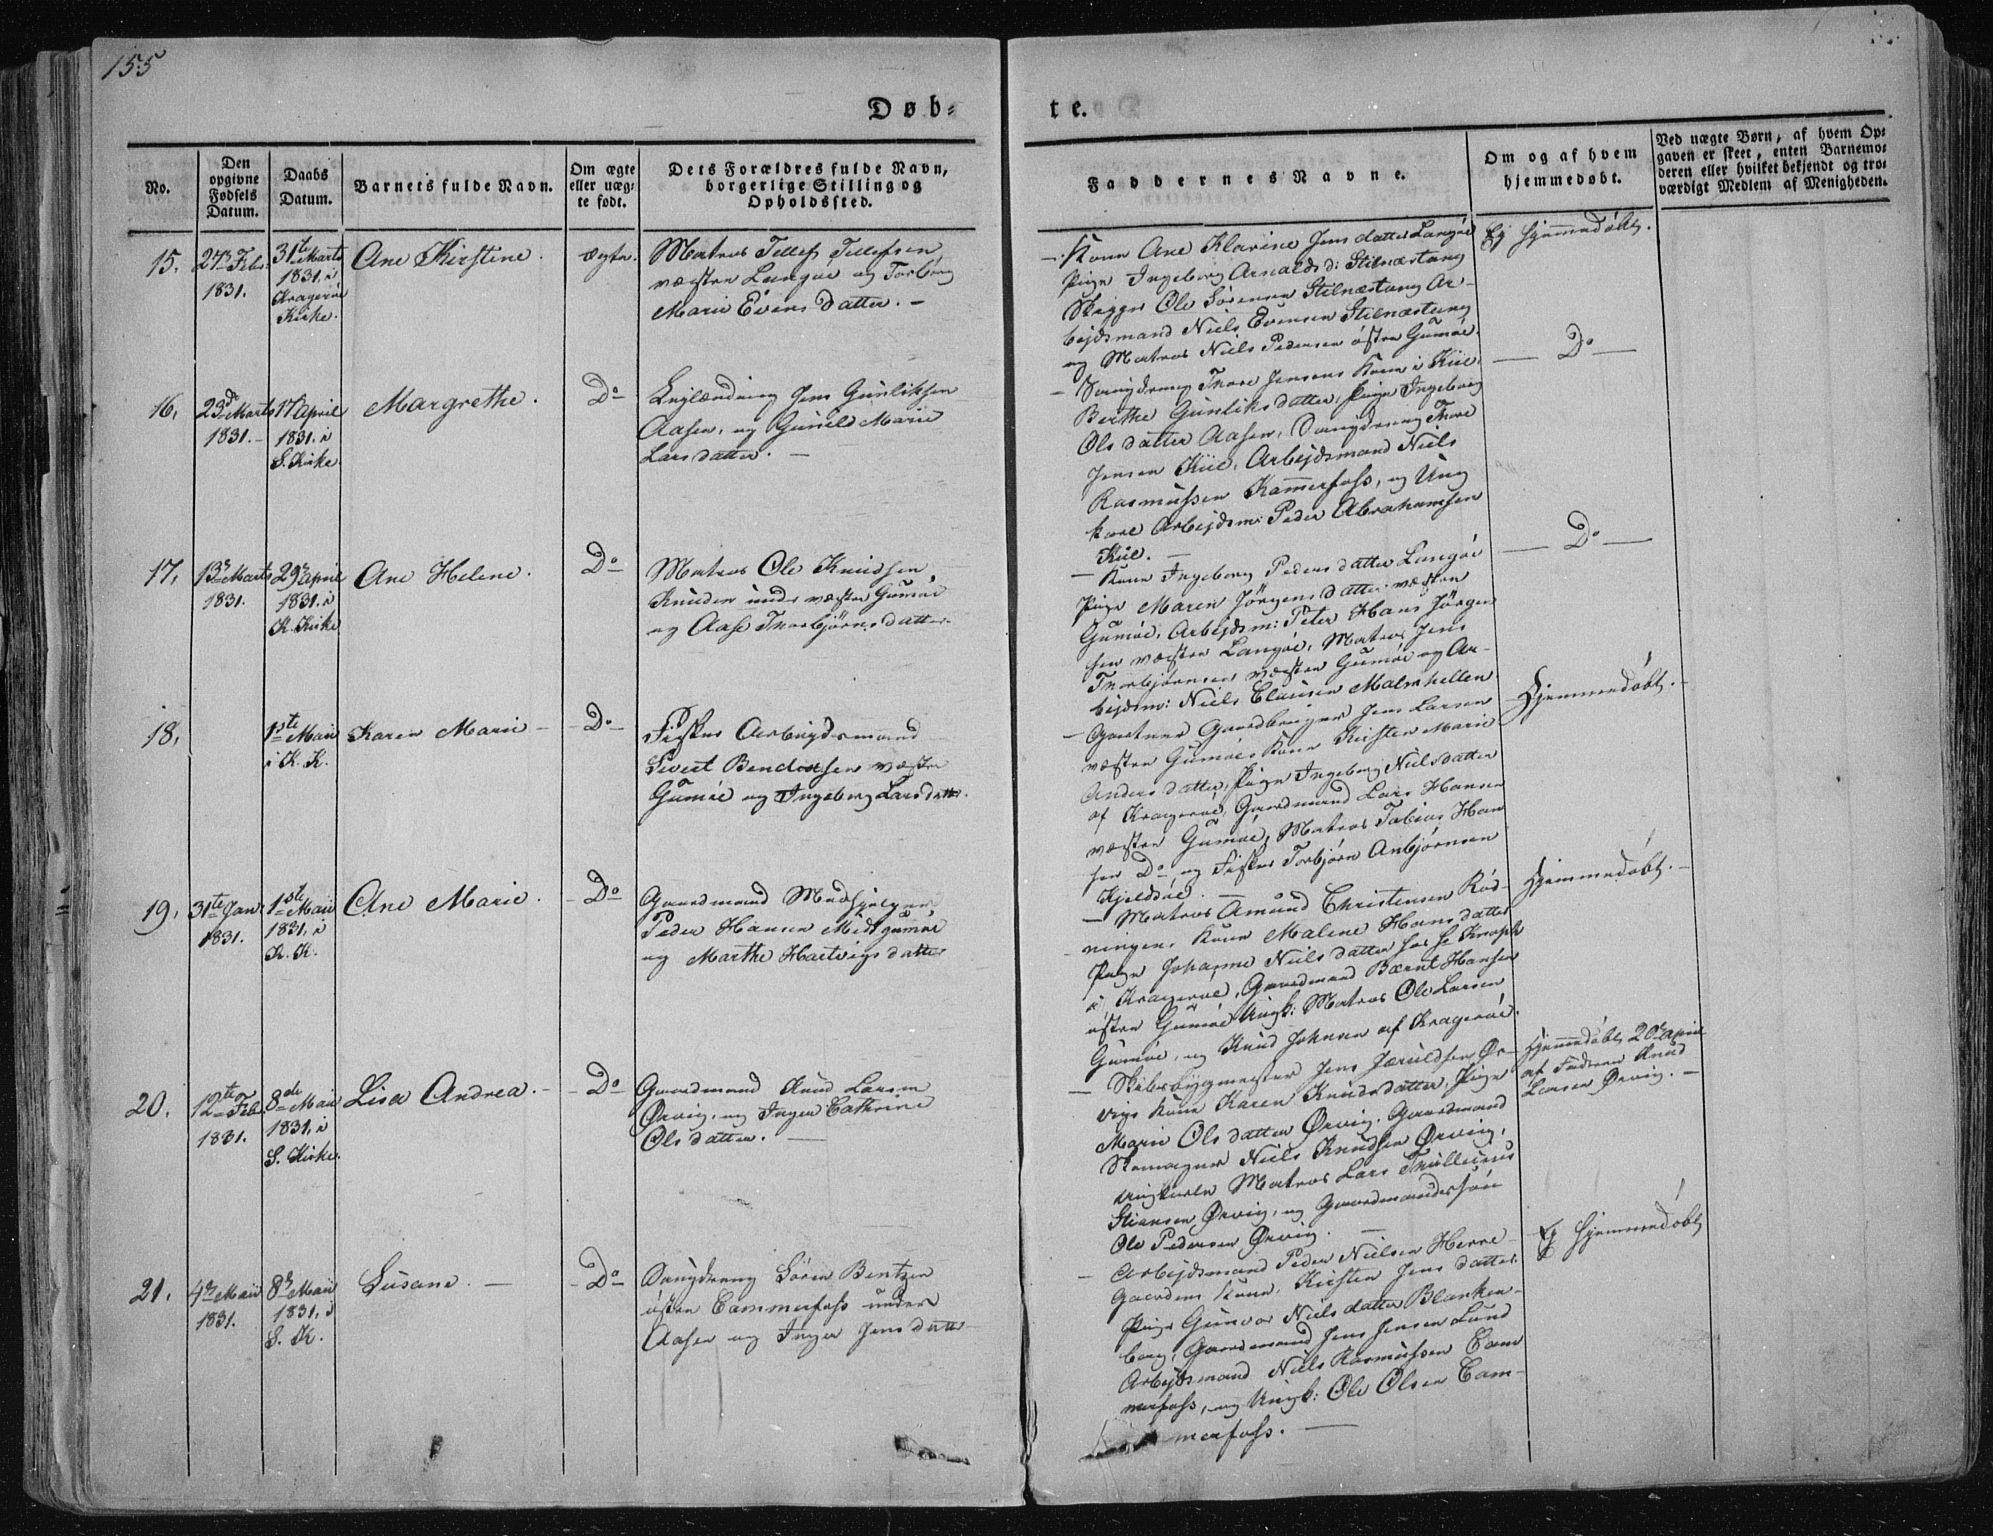 155
Døb-
te.
No.
Den opgivne Fødsels Datum.
Daabs Datum.
Barnets fulde Navn.
Om ægte eller uægte født.
Dets Forældres fulde Navn, borgerlige Stilling og Opholdssted.
Faddernes Navne.
Om og af hvem hjemmedøbt.
Ved uægte Børn, af hvem Opgaven er skeet, enten Barnemoderen eller hvilket bekjendt og troværdigt Medlem af Menigheden.
15.
27de Febr. 1831.
31te Marts 1831. i Kragerøe Kirke.
Ane Kirstine.
ægte.
Matros Tellef Tellefsen
væstre Langøe og Torborg
Marie Evens datter. –
– Kone Ane Klarine Jens datter Langøe
Pige Ingeborg Arnolds d: Stilnæstang
Skipper Ole Sørensen Stilnæstang Ar-
bejdsmand Niels Evensen Stilnæstang
og Matros Niels Pedersen østre Gumøe.
Ej hjemmedøbt.
16.
23de Marts 1831. –
17 April 1831. i S. Kirke
Margrethe.
Do
Inglænding Jens Gunliksen
Aasen, og Gunild Marie
Lars datter. –
– Daugdreng Thore Jensens Kone i Kiil.
Berthe Gunliks datter, Pige Ingeborg
Ols datter Aasen, Daugdreng Thore
Jensen Kiil, Arbejdsmand Niels
Rasmussen Kammerfoss, og Ung
karl Arbejdsm: Peder Abrahamsen
Kiil. –
– Do –
17.
13de Marts 1831.
29de April 1831. i K. Kirke
Ane Helene.
Do
Matros Ole Knudsen
Knuden under væstre Gumøe
og Aase Thorbjørns datter.
– Kone Ingeborg Peders datter Langøe
Pige Maren Jørgens datter væstre
Gumøe, Arbejdsm: Peter Hans Jørgen
sen væstre Langøe, Matros Jens
Thorbjørnsen væstre Gumøe og Ar-
bejdsm: Niels Clausen Malmhellen
– Do –
18.
1ste Maii i K. K.
Karen Marie –
– Do –
Fisker Arbejdsmand
Sivert Bendixsen væstre
Gumøe og Ingeborg Lars datter.
– Gaardbruger Jens Larsen
væstre Gumøes Kone Kirsten Marie
Anders datter, Pige Ingeborg Niels datter
af Kragerøe, Gaardmand Lars Hansen
væstre Gumøe, Matros Tobias Han
sen Do og Fisker Torbjørn Anbjørnsen
Kjeldsøe. –
Hjemmedøbt. –
19.
31te Jan: 1831.
1ste Maii 1831, i K. K.
Ane Marie.
– Do
Gaardmand Medhjelper
Peder Hansen Midtgumøe
og Marthe Hartvigs datter
– Matros Amund Christensen Rød-
ningens Kone Malene Hans datter
Pige Johanne Niels datter hos Hr Knoph
i Kragerøe, Gaardmand Bærnt Hansen
østre Gumøe Ungk: Matros Ole Larsen
Gumøe, og Knud Johnsen af Kragerøe.
Hjemmedøbt. –
20.
12te Feb. 1831.
8de Maii 1831, i S. Kirke.
Lisa Andrea. –
– Do
Gaardmand Knud Larsen
Ørvig, og Inger Cathrine
Ols datter. –
– Skibsbygmester Jens Jæruldsen Ør-
vigs Kone Karen Knuds datter, Pige
Marie Ols datter Ørvig, Gaardmand
Skomager Niels Knudsen Ørvig,
Ungkarle Matros Lars Trullerius
Stiansen Ørvig, og Gaardmandssøn
Ole Pedersen Ørvig.
Hjemmedøbt 20de April
af Faderen Knud
Larsen Ørvig. –
21.
4de Maii 1831.
8de Maii 1831, i S. K.
Susane. –
– Do
Daugdreng Søren Bentzen
østre Cammerfoss under
Aasen og Inger Jens datter
– Arbejdsmand Peder Nielsen Herre-
gaardens Kone, Kirsten Jens datter
Pige Gunvor Niels datter Blanken-
borg, Gaardmand Jens Jensen Lund
Arbejdsmand Niels Rasmussen Cam
merfoss, og Ungk: Ole Olsen Cam-
merfoss. –
Ej hjemmedøbt